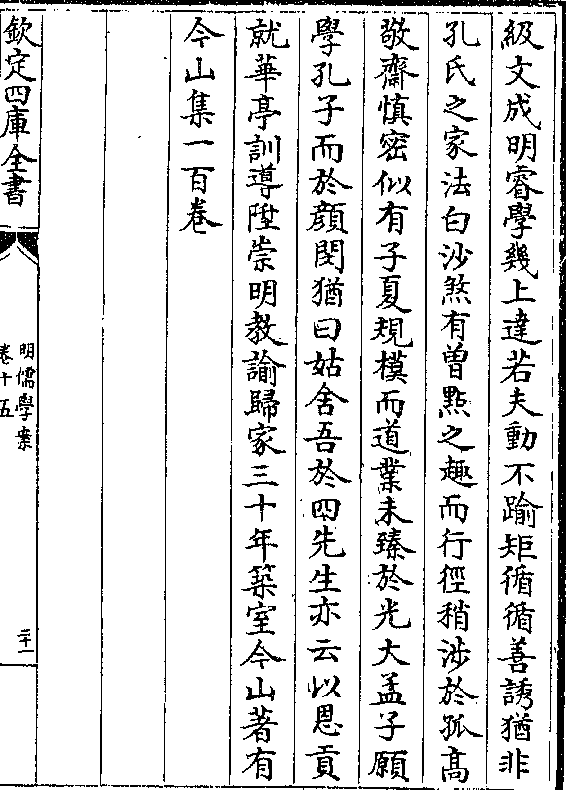 級文成明睿學幾上達若夫動不踰矩循循善誘猶非
孔氏之家法白沙煞有曽㸃之趣而行徑稍涉於孤髙
敬齋慎密似有子夏規模而道業未臻於光大孟子願
學孔子而於顔閔猶曰姑舍吾於四先生亦云以恩貢
就華亭訓導陞崇明教諭歸家三十年築室今山著有
今山集一百卷
欽定四庫全書
明儒學案
卷十五
三十二